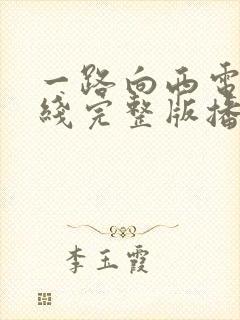 一路向西電
綫完整版播
李玉霞